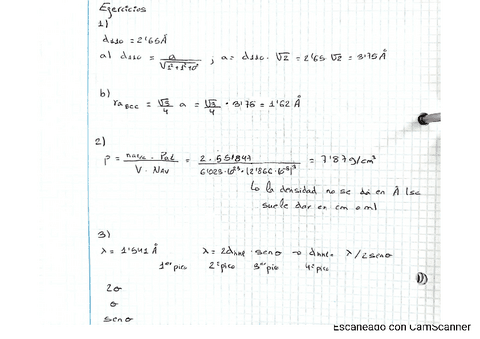 Ejercicios
1)
d110 = 2'65 Å
a) d110 = a / √1²+1²+0² ; a = d110 · √2 = 2'65 √2 = 3'75 Å
b)
ra BCC = √3/4 a = √3/4 · 3'75 = 1'62 Å
2)
ρ = nat/c · Pat / V · NAV = 2 · 55'847 / 6'023·10²³ · (2'866·10⁻⁸)³ = 7'87 g/cm³
la densidad no se dá en Å, se
suele dar en cm o ml
3)
λ = 1'541 Å λ = 2dhkl · senθ → dhkl = λ/2senθ
1er pico 2º pico 3er pico 4º pico
2θ
θ
senθ
Escaneado con CamScanner